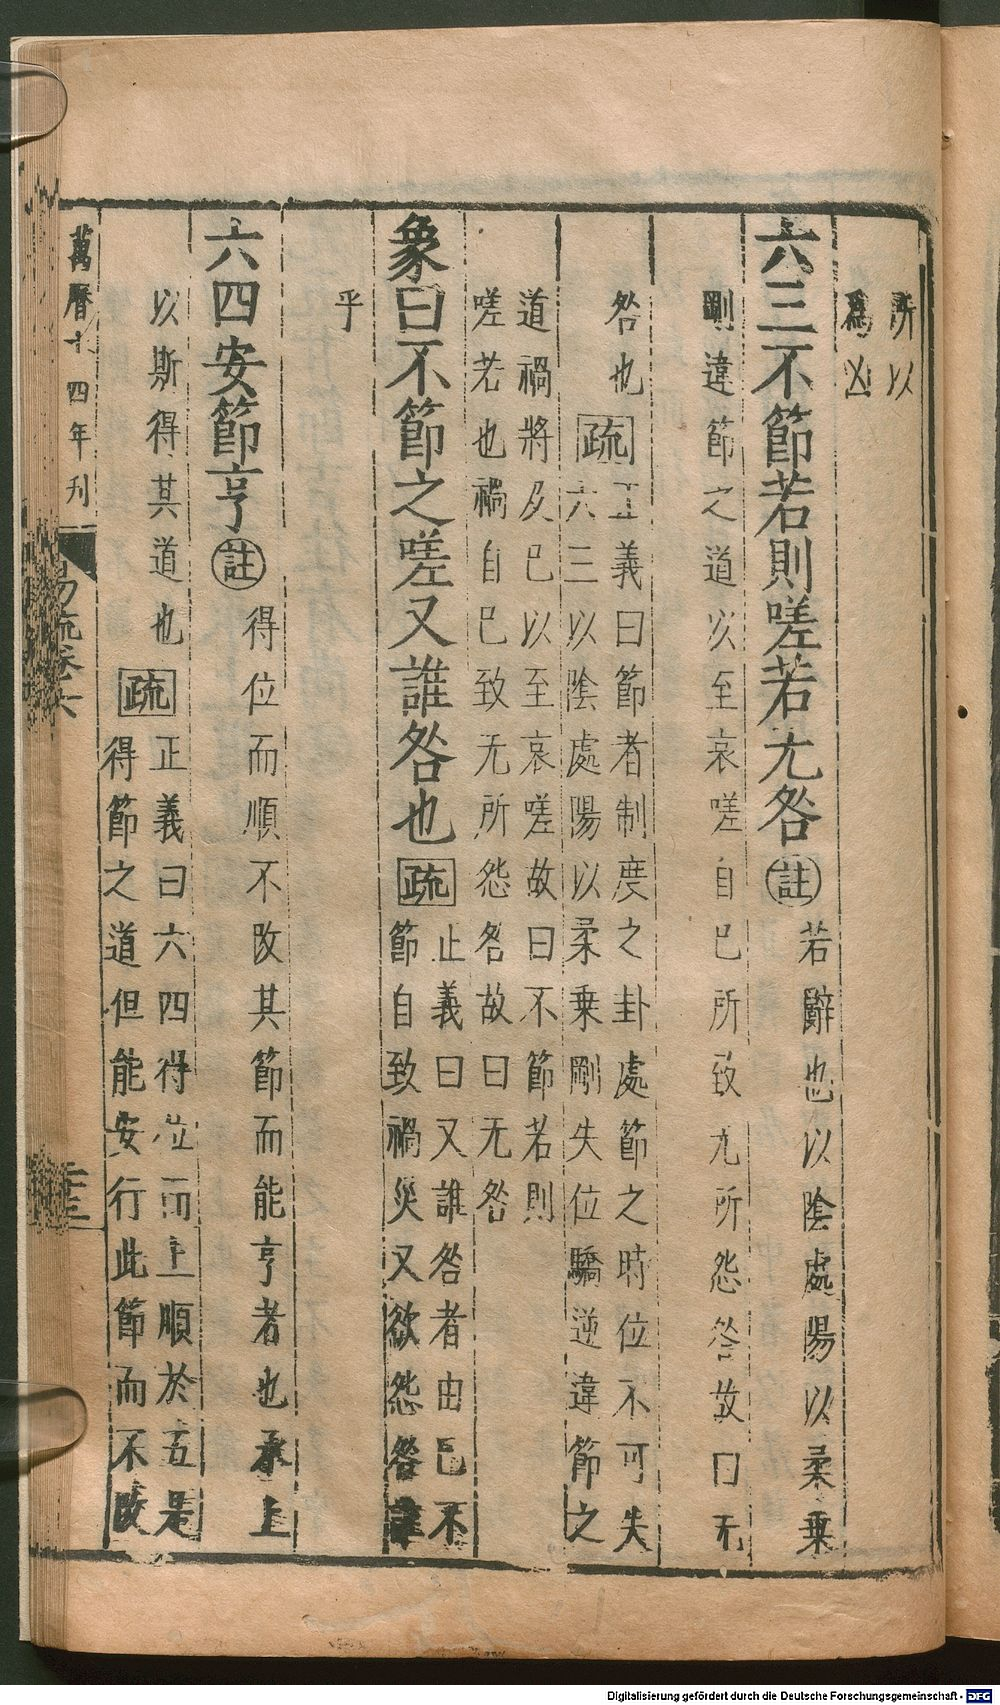 所以
爲凶
六三不節若則嗟若无咎註若辭也以陰處陽以柔乗
剛違節之道以至哀嗟自已所致无所怨咎故曰无
咎也疏正義曰節者制度之卦處節之時位不可失
六三以陰處陽以柔乗剛失位驕逆違節之
道禍將及已以至哀嗟故曰不節若則
嗟若也禍自已致无所怨咎故曰无咎
象曰不節之嗟又誰咎也疏正義曰又誰咎者由已不
節自致禍災又欲怨咎誰
乎
六四安節亨註得位而順不改其節而能亨者也承上
以斯得其道也疏正義曰六四得位而上順於五是
得節之道但能安行此節而不改
萬曆十四年刊
易疏卷六